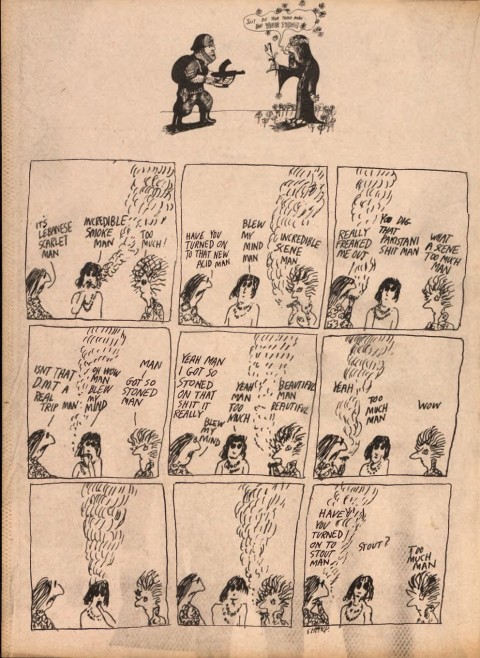 IT'S
LEBANESE
SCARLET
MAN
INCREDIBLE
SMOKE
MAN
TOO
MUCH!
HAVE YOU
TURNED ON
TO THAT NEW
ACID MAN
BLEW
MY
MIND
MAN
INCREDIBLE
SCENE
MAN
REALLY
FREAKED
ME OUT
YOU DIG
THAT
PAKISTANI
SHIT MAN
WHAT
A SCENE
TOO MUCH
MAN
ISNT THAT
D.M.T A
REAL
TRIP MAN
OH WOW
MAN
BLEW
MY
MIND
MAN
GOT SO
STONED
MAN
YEAH MAN
I GOT SO
STONED
ON THAT
SHIT IT
REALLY
BLEW
MY
MIND
YEAH
MAN
TOO
MUCH
BEAUTIFUL
MAN
BEAUTIFUL
YEAH
TOO
MUCH
MAN
WOW
HAVE
YOU
TURNED
ON TO
STOUT
MAN
STOUT?
TOO
MUCH
MAN